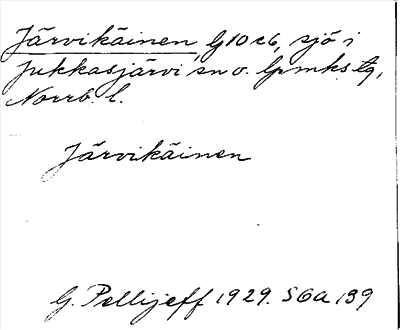 Järvikäinen, G10c6, sjö i
Jukkasjärvi sn o. lpmks tg,
Norrb. l.
Järvikäinen
G. Pellijeff 1929. SGa 139